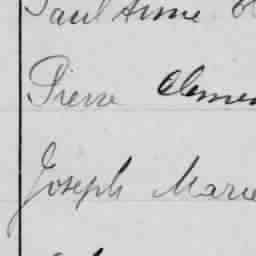 Paul Anne
Pierre Clemen
Joseph Marie